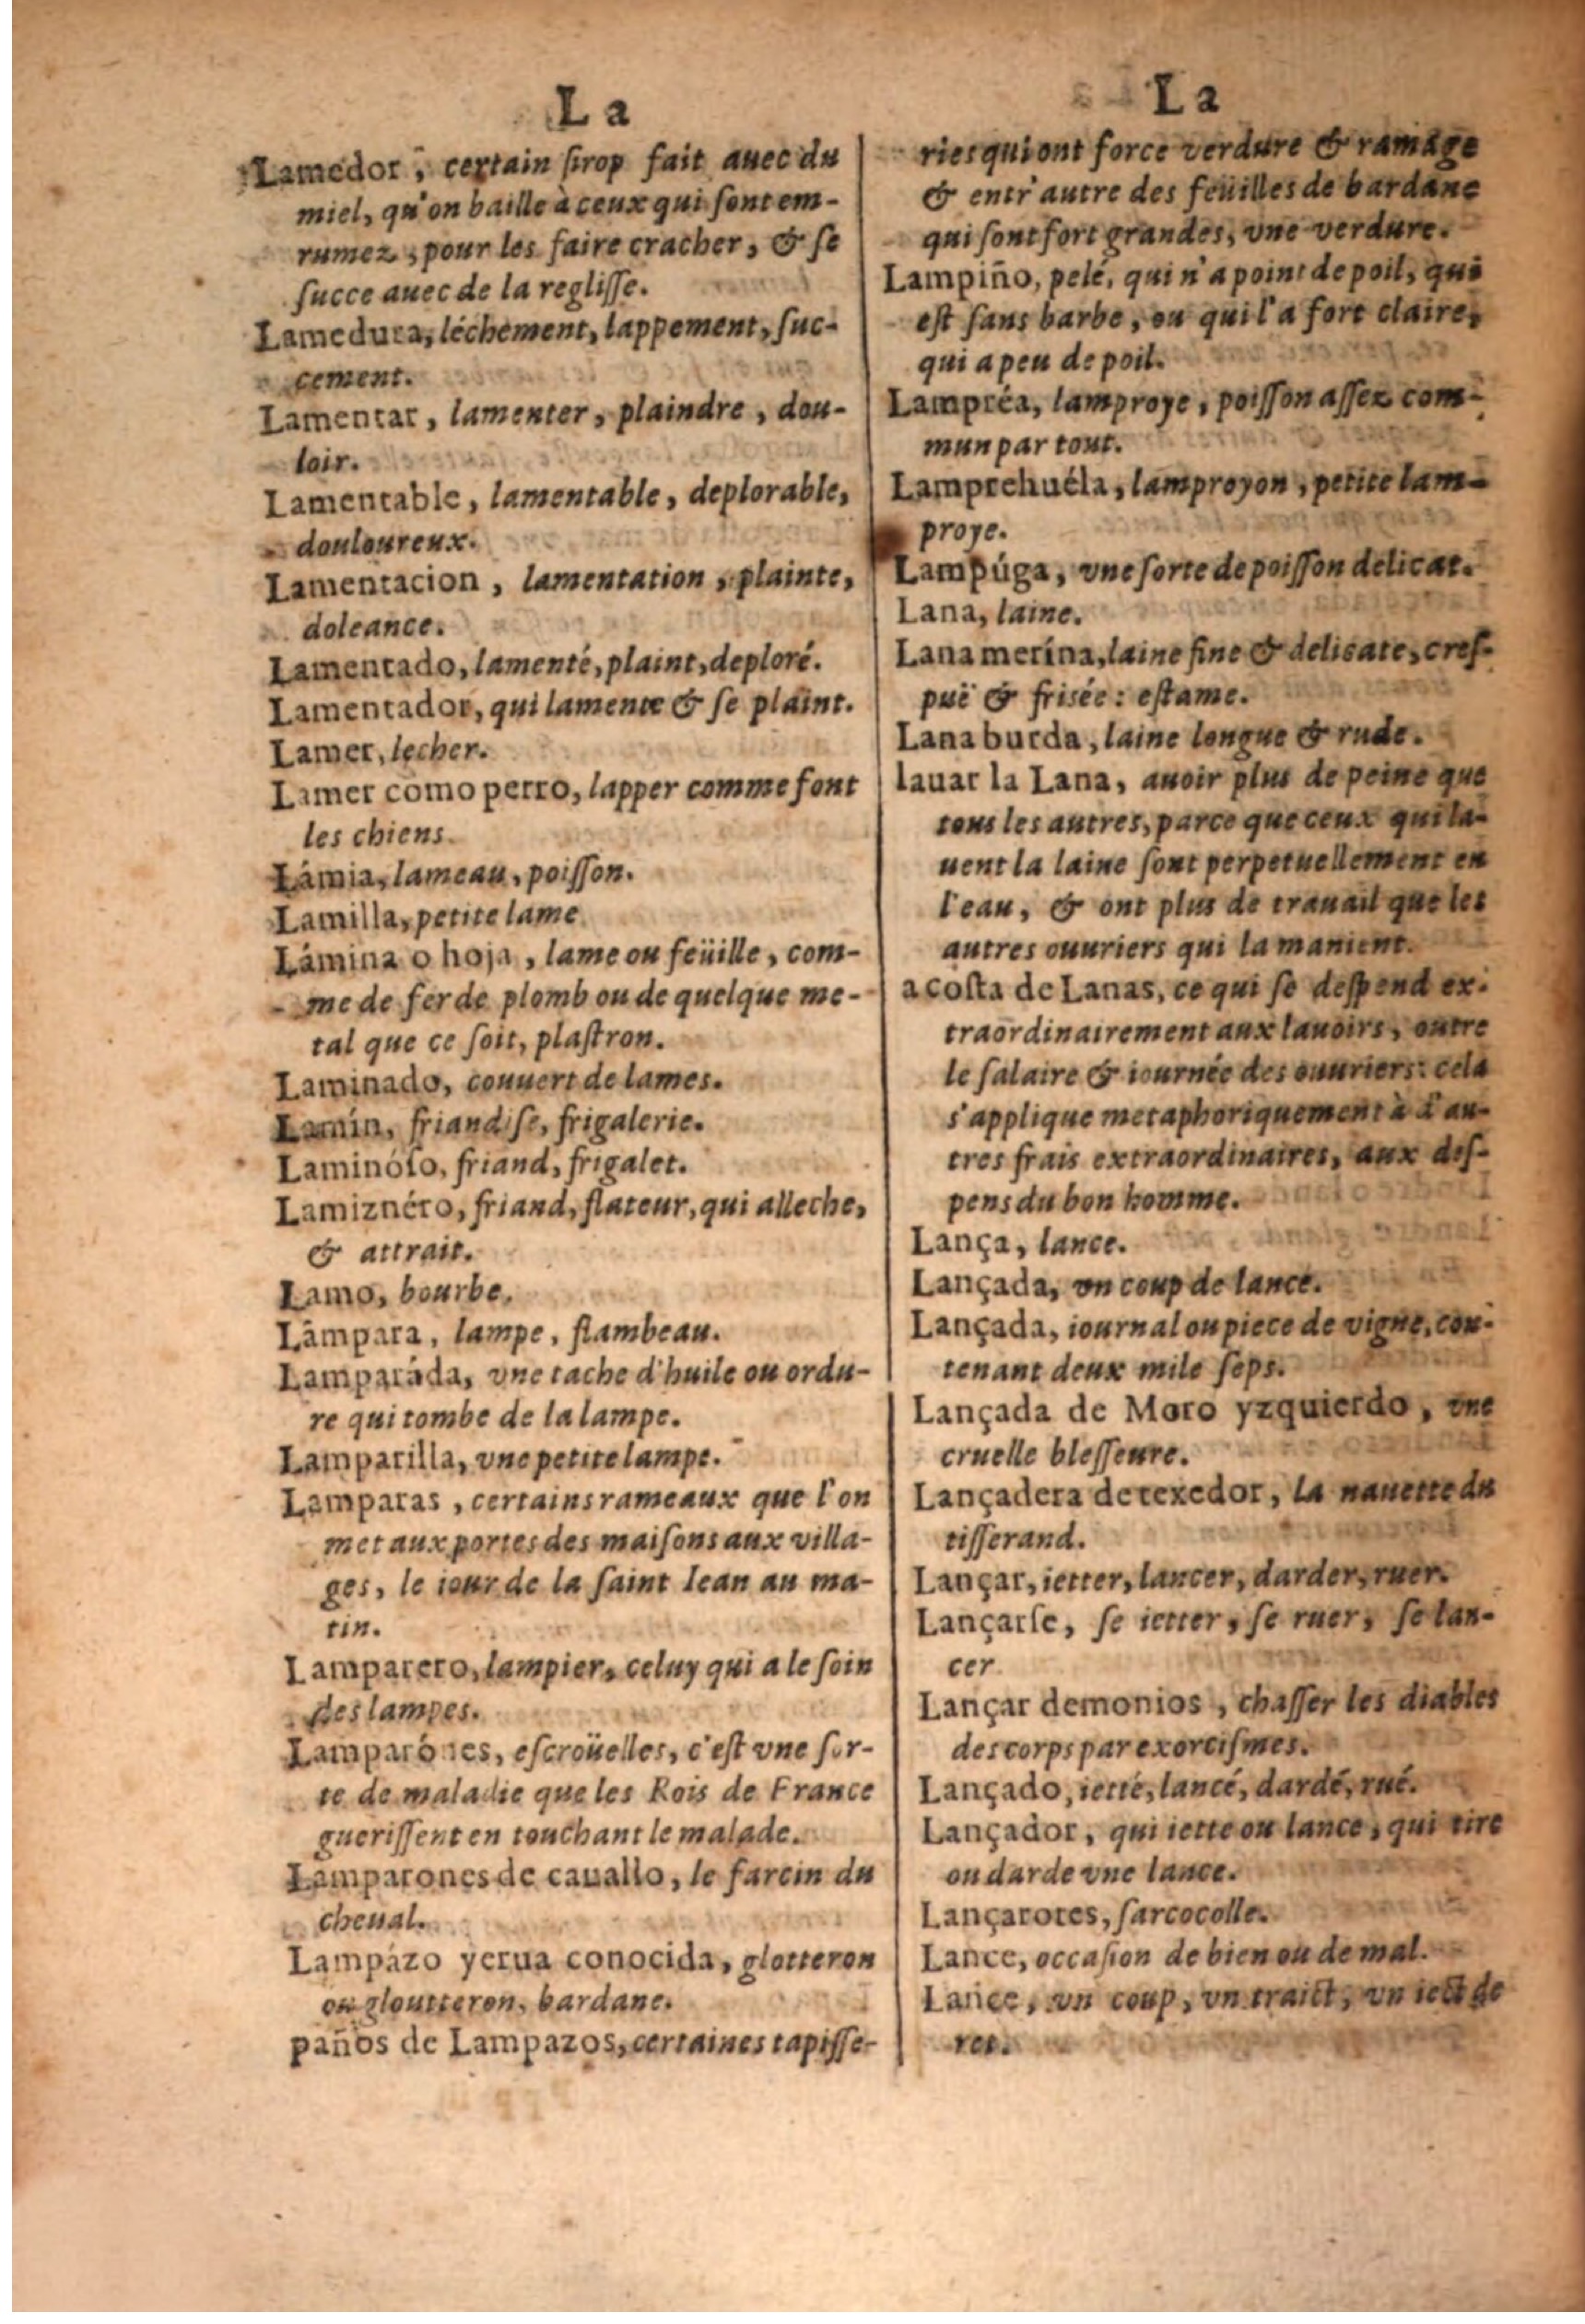 La
Lamedor, certain sirop fait auec du
miel, qu'on baille à ceux qui sont em-
rumez, pour les faire cracher, & se
succe auec de la reglisse.
Lamedura, léchement, lappement, suc-
cement.
Lamentar, lamenter, plaindre, dou-
loir.
Lamentable, lamentable, deplorable,
douloureux.
Lamentacion, lamentation, plainte,
doleance.
Lamentado, lamenté, plaint, deploré.
Lamentador, qui lamente & se plaint.
Lamer, lecher.
Lamer como perro, lapper comme font
les chiens.
Lámia, lameau, poisson.
Lamilla, petite lame
Lámina o hoja, lame ou feüille, com-
me de fer de plomb ou de quelque me-
tal que ce soit, plastron.
Laminado, couuert de lames.
Lamín, friandise, frigalerie.
Laminóso, friand, frigalet.
Lamiznéro, friand, flateur, qui alleche,
& attrait.
Lamo, bourbe.
Lámpara, lampe, flambeau.
Lamparáda, vne tache d'huile ou ordu-
re qui tombe de la lampe.
Lamparilla, vne petite lampe.
Lamparas, certains rameaux que l'on
met aux portes des maisons aux villa-
ges, le iour de la saint Iean au ma-
tin.
Lamparero, lampier, celuy qui a le soin
des lampes.
Lamparónes, escroüelles, c'est vne sor-
te de maladie que les Rois de France
guerissent en touchant le malade.
Lamparones de cauallo, le farcin du
cheual.
Lampázo yerua conocida, glotteron
ou gloutteron, bardane.
paños de Lampazos, certaines tapisse-
La
ries qui ont force verdure & ramage
& entr'autre des feüilles de bardane
qui sont fort grandes, vne verdure.
Lampiño, pelé, qui n'a point de poil, qui
est sans barbe, ou qui l'a fort claire,
qui a peu de poil.
Lampréa, lamproye, poisson assez com-
mun par tout.
Lamprehuéla, lamproyon, petite lam-
proye.
Lampúga, vne sorte de poisson delicat.
Lana, laine.
Lana merína, laine fine & delicate, cres-
puë & frisée: estame.
Lana burda, laine longue & rude.
lauar la Lana, auoir plus de peine que
tous les autres, parce que ceux qui la-
uent la laine sont perpetuellement en
l'eau, & ont plus de trauail que les
autres ouuriers qui la manient.
a costa de Lanas, ce qui se despend ex-
traordinairement aux lauoirs, outre
le salaire & iournée des ouuriers: cela
s'applique metaphoriquement à d'au-
tres frais extraordinaires, aux des-
pens du bon homme.
Lança, lance.
Lançada, vn coup de lance.
Lançada, iournal ou piece de vigne, con-
tenant deux mile seps.
Lançada de Moro yzquierdo, vne
cruelle blesseure.
Lançadera de texedor, la nauette du
tisserand.
Lançar, ietter, lancer, darder, ruer.
Lançarse, se ietter, se ruer, se lan-
cer
Lançar demonios, chasser les diables
des corps par exorcismes.
Lançado, ietté, lancé, dardé, rué.
Lançador, qui iette ou lance, qui tire
ou darde vne lance.
Lançarotes, sarcocolle.
Lance, occasion de bien ou de mal.
Lance, vn coup, vn traict, vn iect de
ret.